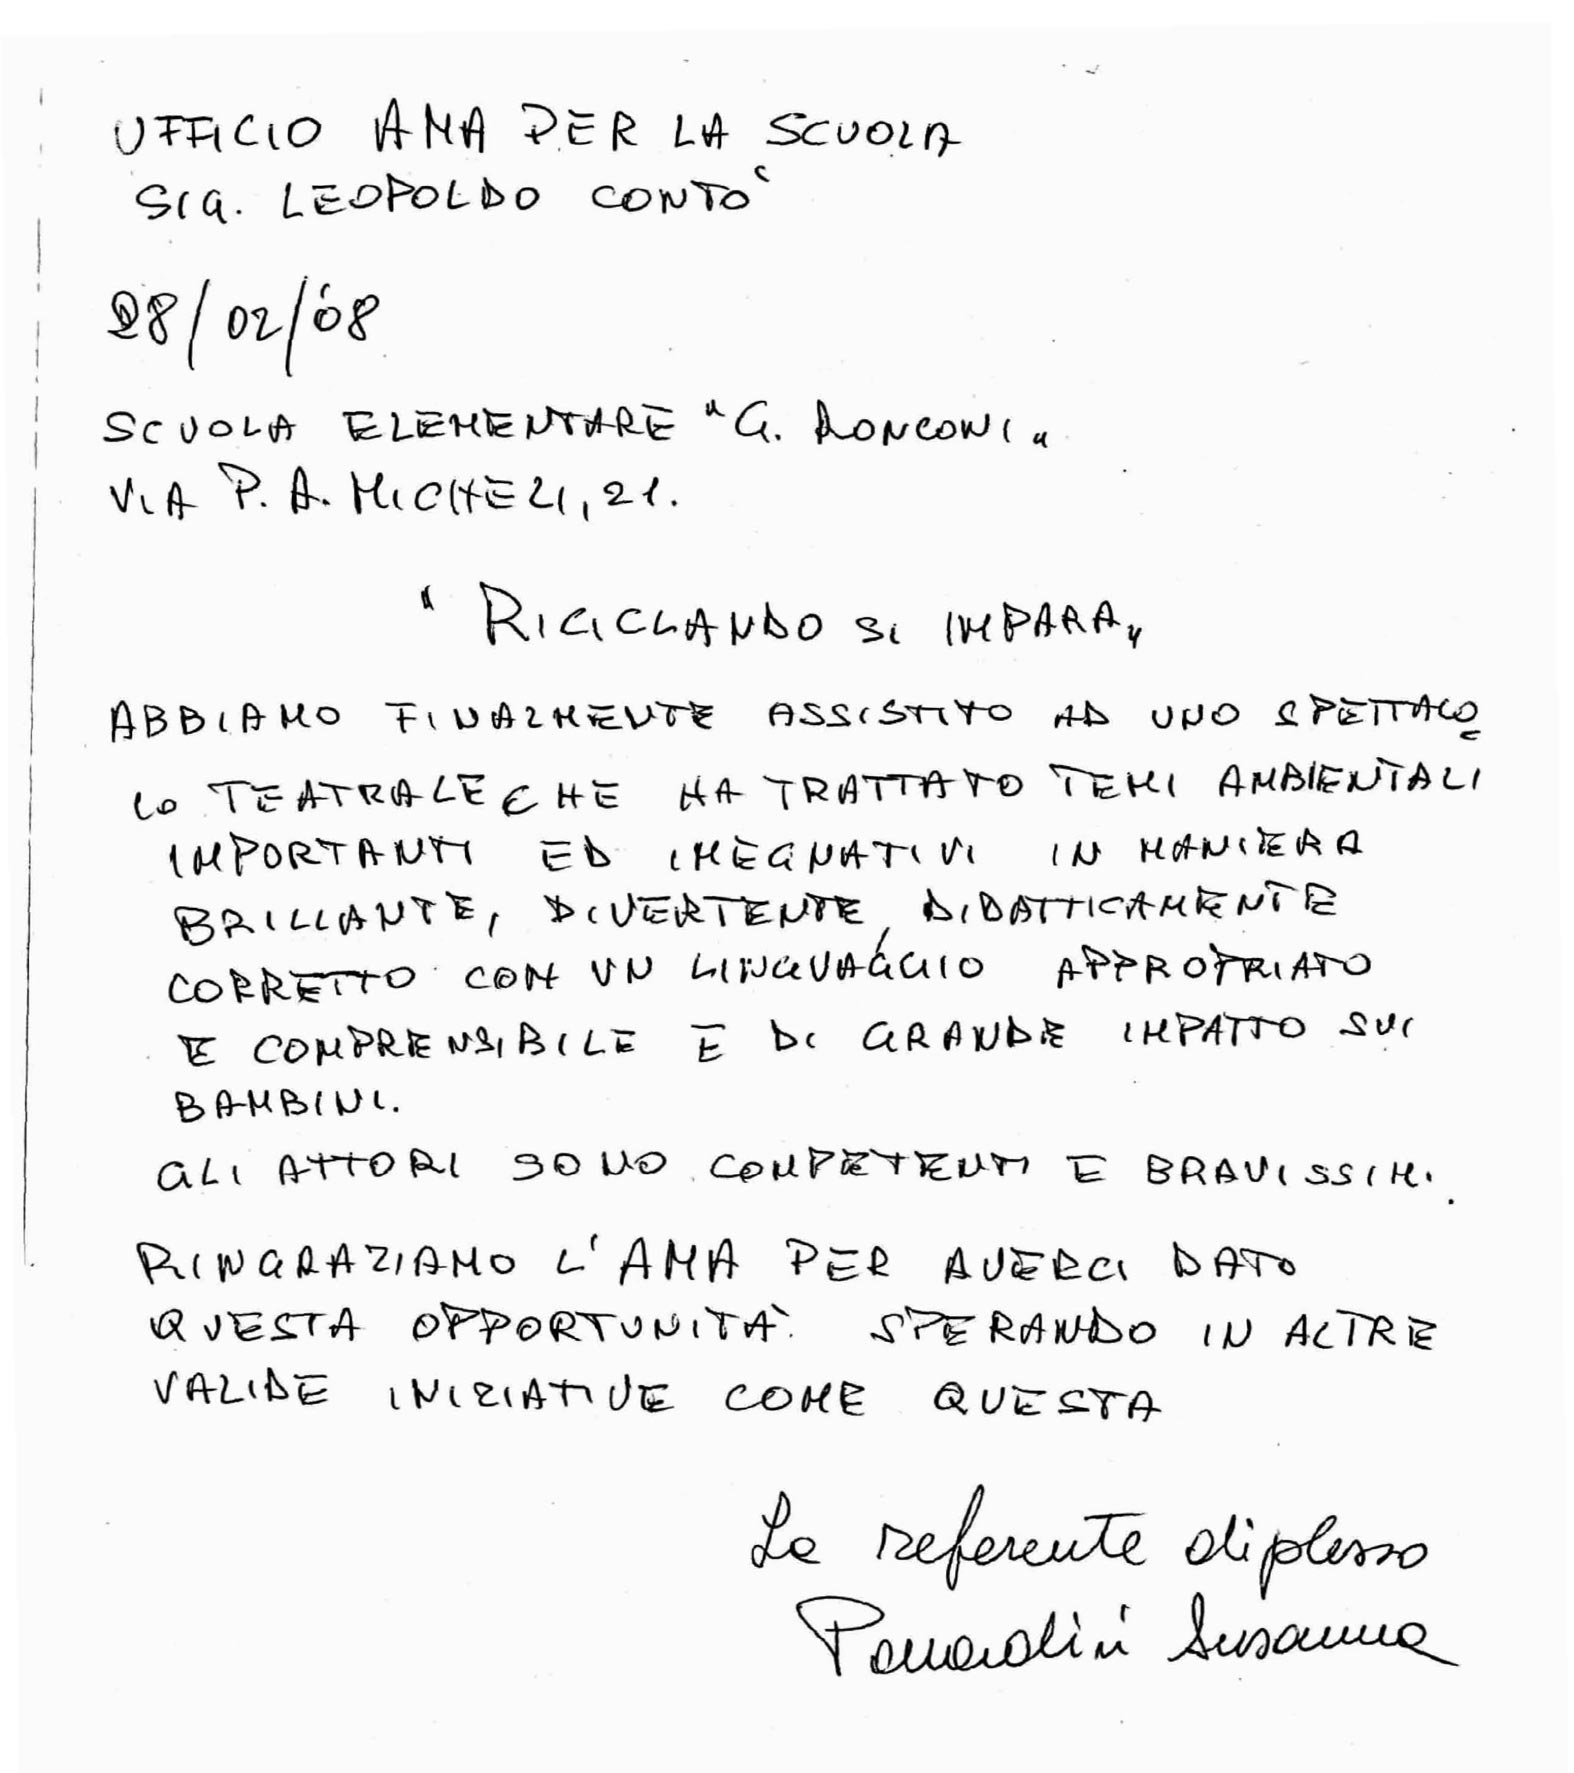 UFFICIO AMA PER LA SCUOLA
SIG. LEOPOLDO CONTO'
28/02/08
SCUOLA ELEMENTARE "G. RONCONI"
VIA P. A. MICHELI, 21.
"RICICLANDO SI IMPARA"
ABBIAMO FINALMENTE ASSISTITO AD UNO SPETTACO=
LO TEATRALE CHE HA TRATTATO TEMI AMBIENTALI
IMPORTANTI ED IMEGNATIVI IN MANIERA
BRILLANTE, DIVERTENTE, DIDATTICAMENTE
CORRETTO CON UN LINGUAGGIO APPROPRIATO
E COMPRENSIBILE E DI GRANDE IMPATTO SUI
BAMBINI.
GLI ATTORI SONO COMPETENTI E BRAVISSIMI.
RINGRAZIAMO L'AMA PER AVERCI DATO
QUESTA OPPORTUNITA' SPERANDO IN ALTRE
VALIDE INIZIATIVE COME QUESTA
La referente di plesso
Susanna